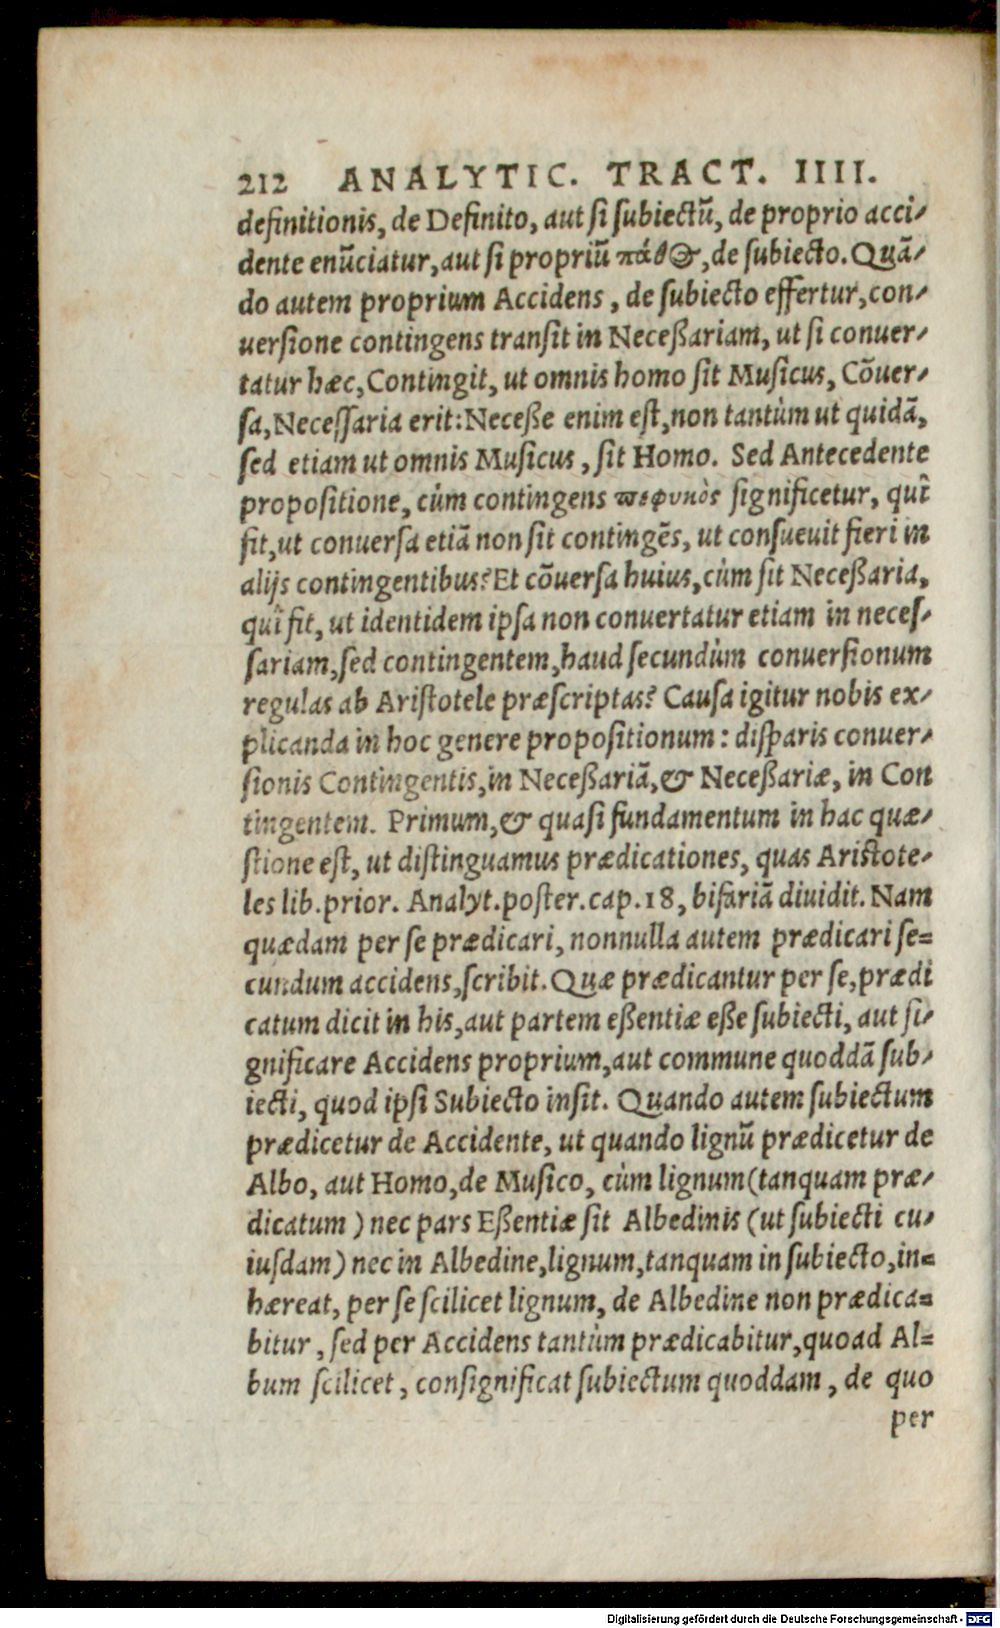 212 ANALYTIC. TRACT. IIII.
definitionis, de Definito, aut si subiectũ, de proprio acci-
dente enũciatur, aut si propriũ πάθος, de subiecto. Quã-
do autem proprium Accidens, de subiecto effertur, con-
uersione contingens transit in Neceßariam, ut si conuer-
tatur hæc, Contingit, ut omnis homo sit Musicus, Cõuer-
sa, Necessaria erit: Neceße enim est, non tantùm ut quidã,
sed etiam ut omnis Musicus, sit Homo. Sed Antecedente
propositione, cùm contingens πεφυκὸς significetur, quî
fit, ut conuersa etiã non sit contingẽs, ut consueuit fieri in
alijs contingentibus? Et cõuersa huius, cùm sit Neceßaria,
quî fit, ut identidem ipsa non conuertatur etiam in neces-
sariam, sed contingentem, haud secundùm conuersionum
regulas ab Aristotele præscriptas? Causa igitur nobis ex-
plicanda in hoc genere propositionum: disparis conuer-
sionis Contingentis, in Neceßariã, & Neceßariæ, in Con
tingentem. Primum, & quasi fundamentum in hac quæ-
stione est, ut distinguamus prædicationes, quas Aristote-
les lib. prior. Analyt. poster. cap. 18, bifariã diuidit. Nam
quædam per se prædicari, nonnulla autem prædicari se-
cundum accidens, scribit. Quæ prædicantur per se, prædi
catum dicit in his, aut partem eßentiæ eße subiecti, aut si-
gnificare Accidens proprium, aut commune quoddã sub-
iecti, quod ipsi Subiecto insit. Quando autem subiectum
prædicetur de Accidente, ut quando lignũ prædicetur de
Albo, aut Homo, de Musico, cùm lignum (tanquam præ-
dicatum) nec pars Eßentiæ sit Albedinis (ut subiecti cu-
iusdam) nec in Albedine, lignum, tanquam in subiecto, in-
hæreat, per se scilicet lignum, de Albedine non prædica-
bitur, sed per Accidens tantùm prædicabitur, quoad Al-
bum scilicet, consignificat subiectum quoddam, de quo
per
Digitalisierung gefördert durch die Deutsche Forschungsgemeinschaft - DFG